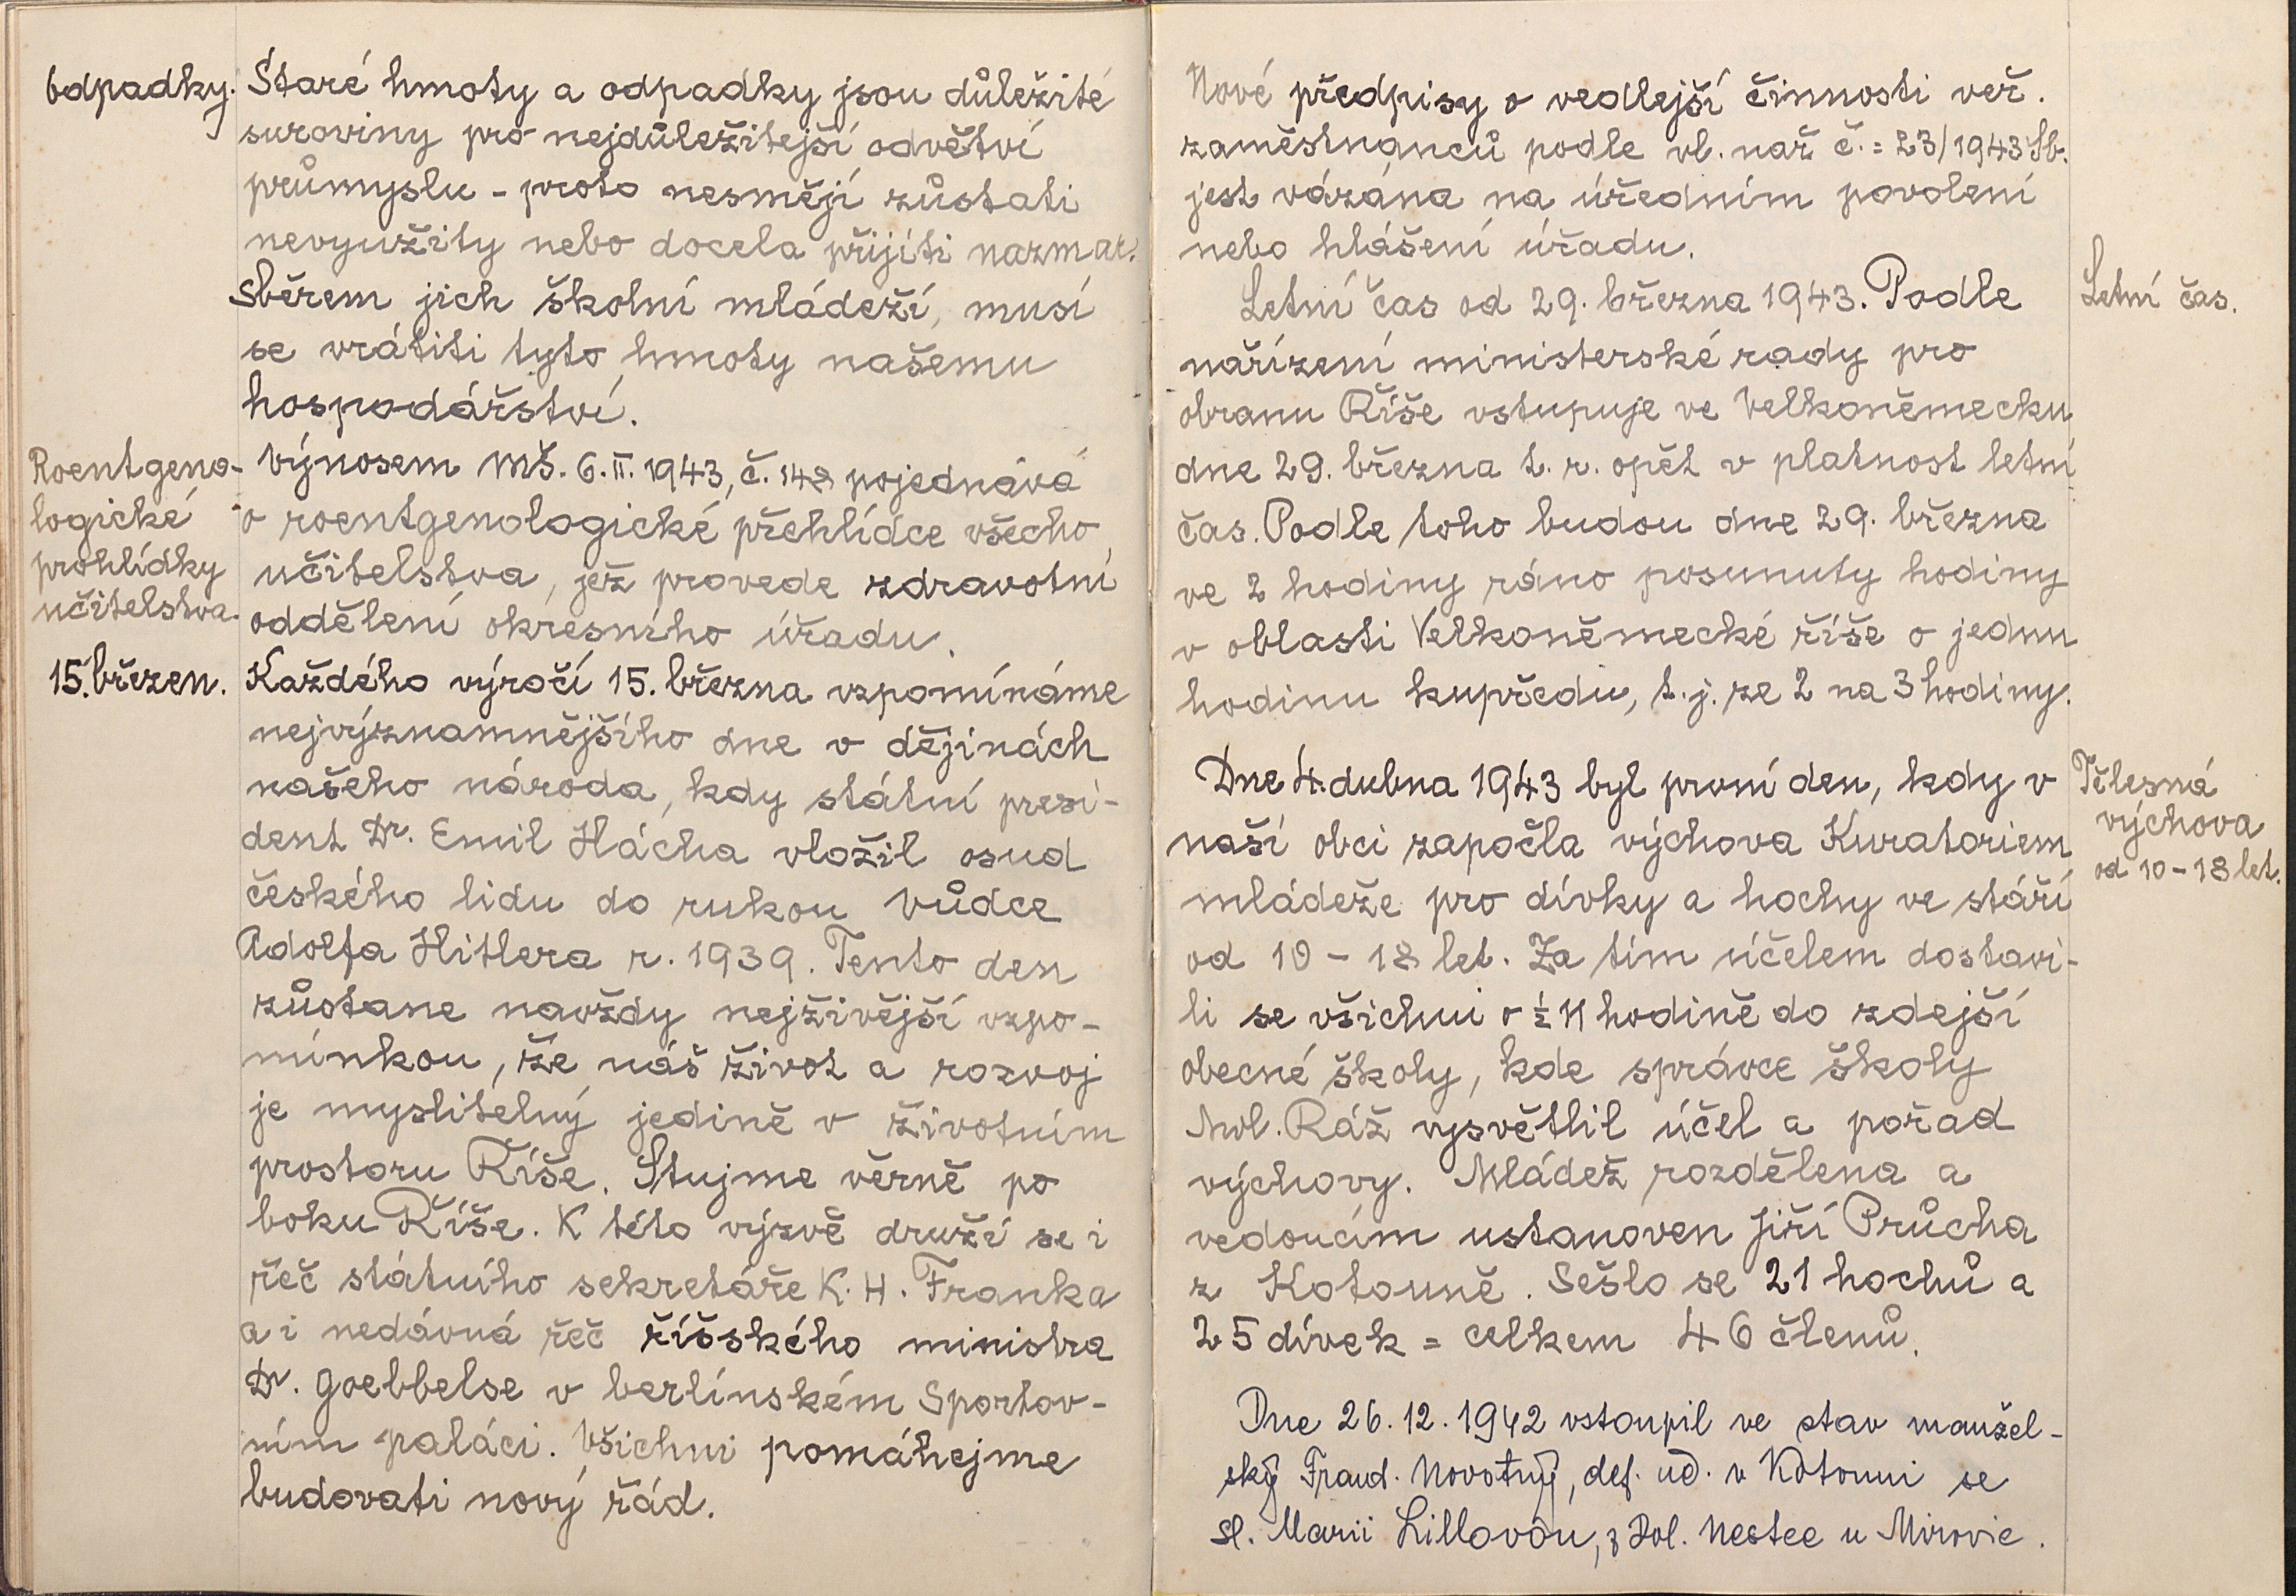 Odpadky.
Staré hmoty a odpadky jsou důležité
suroviny pro nejdůležitejší odvětví
průmyslu - proto nesmějí zůstati
nevyužity nebo docela přijíti nazmar.
Sběrem jich školní mládeží, musí
se vrátiti tyto hmoty našemu
hospodářství.
Roentgeno-
logické
prohlídky
učitelstva.
Výnosem MŠ. 6. II. 1943, č. 148 pojednává
o roentgenologické přehlídce všecho
učitelstva, jež provede zdravotní
oddělení okresního úřadu.
15. březen.
Každého výročí 15. března vzpomínáme
nejvýznamnějšího dne v dějinách
našeho národa, kdy státní presi-
dent Dr. Emil Hácha vložil osud
českého lidu do rukou Vůdce
Adolfa Hitlera r. 1939. Tento den
zůstane navždy nejživější vzpo-
mínkou, že náš život a rozvoj
je myslitelný jedině v životním
prostoru Říše. Stujme věrně po
boku Říše. K této výzvě druží se i
řeč státního sekretáře K. H. Franka
a i nedávná řeč říšského ministra
Dr. Goebbelse v berlínském Sportov-
ním paláci. Všichni pomáhejme
budovati nový řád.
Nové předpisy o vedlejší činnosti veř.
zaměstnanců podle vl. nař č. = 23/1943 Sb.
jest vázána na úředním povolení
nebo hlášení úřadu.
Letní čas.
Letní čas od 29. března 1943. Podle
nářízení ministerské rady pro
obranu Říše vstupuje ve Velkoněmecku
dne 29. března t. r. opět v platnost letní
čas. Podle toho budou dne 29. března
ve 2 hodiny ráno posunuty hodiny
v oblasti Velkoněmecké říše o jednu
hodinu kupředu, t. j. ze 2 na 3 hodiny.
Tělesná
výchova
od 10 - 18 let.
Dne 4. dubna 1943 byl první den, kdy v
naší obci započla výchova Kuratoriem
mládeže pro dívky a hochy ve stáří
od 10 - 18 let. Za tím účelem dostavi-
li se všichni o ½ 11 hodině do zdejší
obecné školy, kde správce školy
Mol. Ráž vysvětlil účel a pořad
výchovy. Mládež rozdělena a
vedoucím ustanoven Jiří Průcha
z Kotouně. Sešlo se 21 hochů a
25 dívek = celkem 46 členů.
Dne 26. 12. 1942 vstoupil ve stav manžel-
ský Frant. Novotný, def. uč. v Kotouni se
sl. Marii Lillovou, z Dol. Nestec u Mirovic.